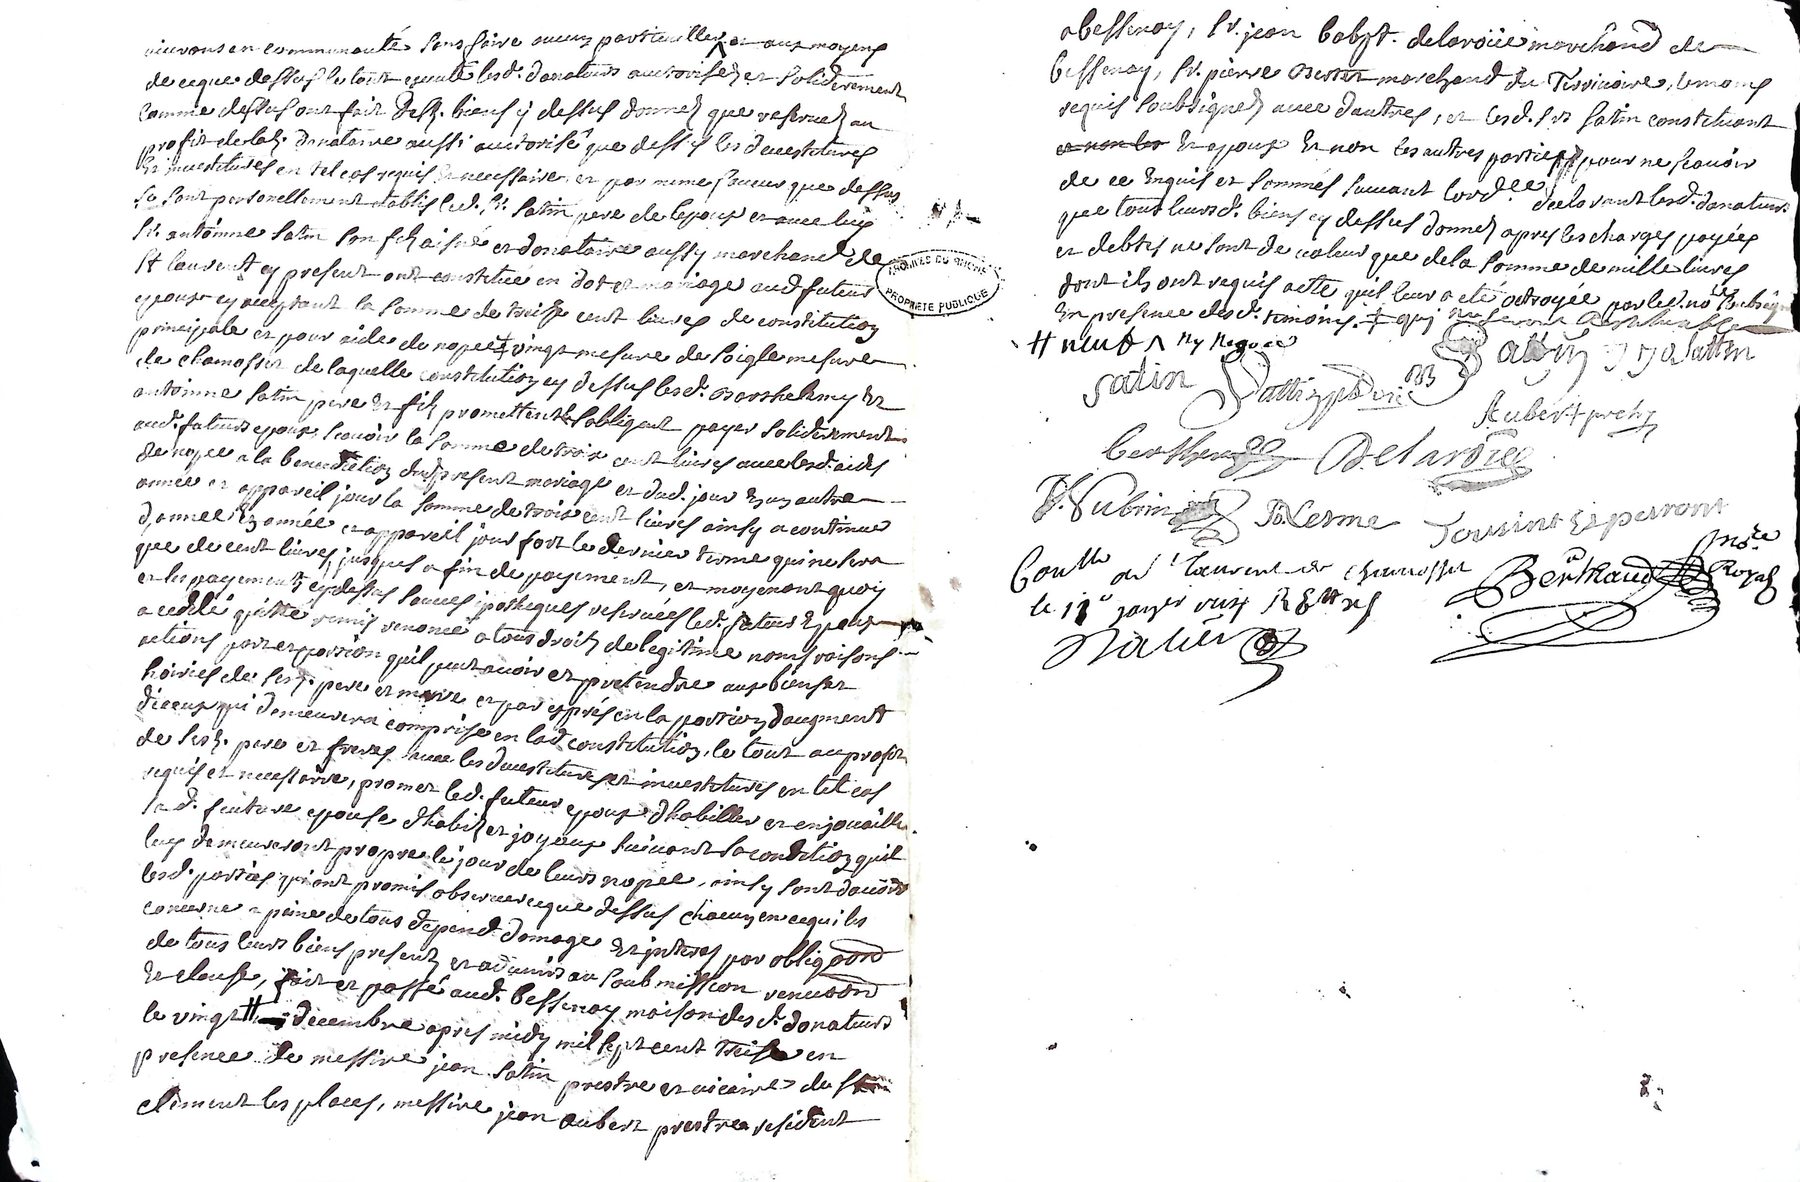 vivrons en communauté sans faire aucun particullier ^ et aux moyens
de ceque dessus le tout quoy lesd. donateurs authorisez et solidérement
comme dessus ont fait desd. biens cy dessus donnez que reservez au
profit de lad. donataire aussi authorisé que dessus les devestitures
et investitures en tel cas requis et necessaire, et par meme faveur que dessus
se sont personellement establis led. sr. satin pere de lepoux et avec luy
sr. antoinne satin son fils aisné et donataire aussy marchand de
st laurent cy present ont constitué en dot et mariage aud. futeur
epoux cy acceptant la somme de treise cent livres de constitution
principale et pour aide de nopce vingt mesure de soigle mesure
de chamosset de laquelle constitution cy dessus lesd. Barthelemy et
antoinne satin pere et fils promettent et sobligent payer solidérement
aud. futeurs epoux, scavoir la somme de trois cent livres avec lesd. aides
de nopce a la benediction du present mariage et dud. jour en un autre
année et appareil jour la somme de trois cent livres ainsy a continue
d'année en année et appareil jour fort le dernier terme qui ne sera
que de cent livres, jusques a fin de payement, et moyenant quoy
et les payements cy dessus sauces ipotheques reservées led. futeur epoux
a cedé quitté remis renoncé a tous droits de legitime noms raisons
actions part et portion quil peut avoir et pretendre aux biens et
hoiries de sesd. pere et mere et par exprés en la portion daugment
diceux qui demeurera comprise en lad. constitution, le tout au profit
de sesd. pere et freres avec les devestitures et investitures en tel cas
requis et necessaire, promet led. futeur epoux d'habiller et enjouailler
lad. future epouse d'habits et joyaux suivant sa condition quil
luy demeureront propre le jour de leurs nopce, ainsy sont d'accord
lesd. parties qui ont promis observer ceque dessus chacun en cequi les
concerne a peine de tous depend. domage et interes par obligaon
de tous leurs biens presents et advenir au soubmission renuaon
et clause, fait et passé aud. bessenay maison desd. donateurs
le vingt # decembre apres midy mil sept cent treise en
presence de messire jean satin prestre et vicaire du
clement les places, messire jean aubert prestre resident
abessenay, sr. jean babpt. delaroüe marchand de
bessenay, sr. pierre marchand du Terrivoire, temoins
requis soubsignez avec d'autres, et lesd. srs satin constituant
et non les et epoux et non les autres parties pour ne scavoir
de ce enquis et sommés suivant lord.ce declarant lesd. donateurs
que tous leursd. biens cy dessus donnez apres les charges payées
et debtes ne sont de valeur que dela somme de mille livres
dont ils ont requis acte quil leur a eté octroyée par led. no.re soubsigné
en presence desd. temoins. ‡ qui
# neuf ^ ny negoce
Satin Satin J J Sattin
Aubert prebt
berthe Delaroüe
P. Subrin
Contlle a st laurent de chamosset
le 12e janvier
Berthaud no.re Royal
ARCHIVES DU RHONE
PROPRIETE PUBLIQUE